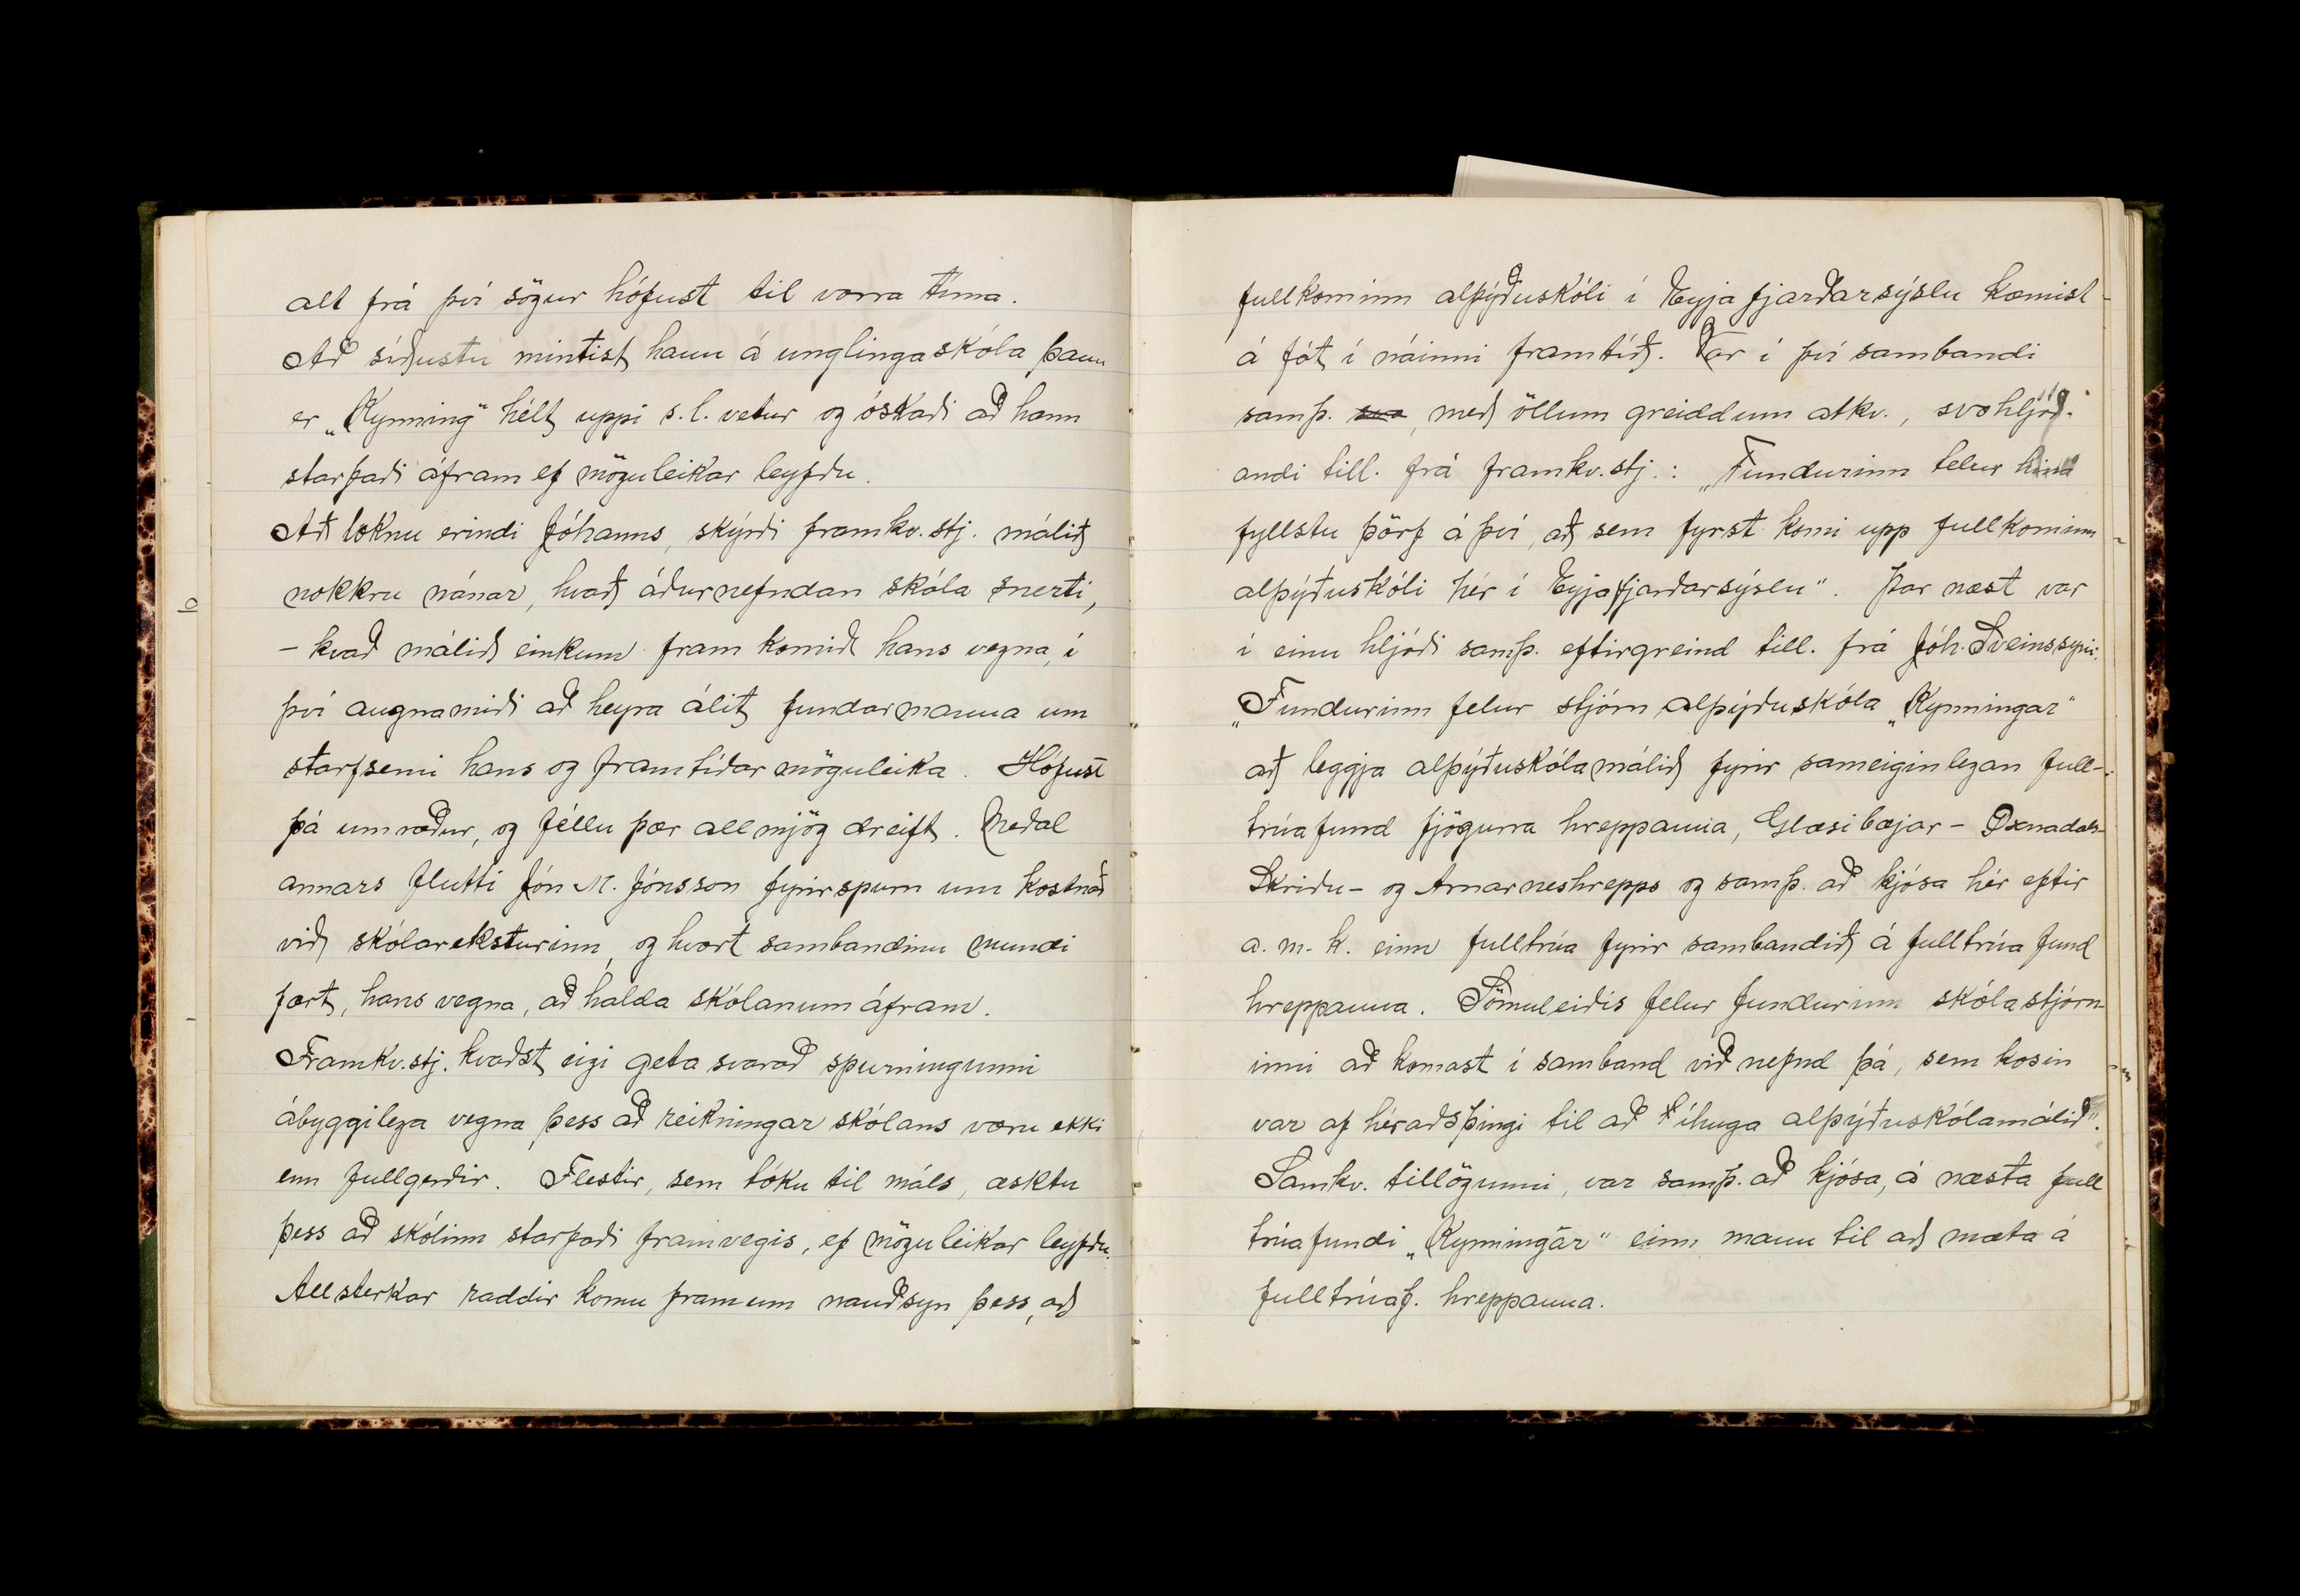 alt frá því sögur hófust til vorra tíma.
Að síðustu mintist hann á unglingaskóla þann
er „Kynning“ hélt uppi s.l. vetur og óskaði að hann
starfaði áfram ef möguleikar leyfðu.
Að loknu erindi Jóhanns, skýrði framkv.stj. málið
nokkru nánar, hvað áðurnefndan skóla snerti,
- kvað málið einkum fram komið hans vegna, í
því augnamiði að heyra álit fundarmanna um
starfsemi hans og framtíðar möguleika. Hófust
þá umræður, og féllu þær allmjög dreift. Meðal
annars flutti Jón M. Jónsson fyrirspurn um kostnað
við skólareksturinn, og hvort sambandinu mundi
fært, hans vegna, að halda skólanum áfram.
Framkv.stj. kvaðst eigi geta svarað spurningunni
ábyggilega vegna þess að reikningar skólans væru ekki
enn fullgerðir. Flestir, sem tóku til máls, æsktu
þess að skólinn starfaði framvegis, ef möguleikar leyfðu.
Allsterkar raddir komu fram um nauðsyn þess, að
fullkominn alþýðuskóli í Eyjafjarðarsýslu kæmist
á fót í náinni framtíð. Var í því sambandi
samþ. svo, með öllum greiddum atkv., svohljóð-
andi till. frá framkv.stj.: „Fundurinn telur hina
fyllstu þörf á því, að sem fyrst komi upp fullkominn
alþýðuskóli hér í Eyjafjarðarsýslu“. Þar næst var
í einu hljóði samþ. eftirgreind till. frá Jóh. Sveinssyni:
„Fundurinn felur stjórn alþýðuskóla „Kynningar“
að leggja alþýðuskólamálið fyrir sameiginlegan full-
trúafund fjögurra hreppanna, Glæsibæjar- Öxnadals-
Skriðu- og Arnarneshrepps og samþ. að kjósa hér eftir
a. m. k. einn fulltrúa fyrir sambandið á fulltrúafund
hreppanna. Sömuleiðis felur fundurinn skólastjórn-
inni að komast í samband við nefnd þá, sem kosin
var af héraðsþingi til að íhuga alþýðuskólamálið“.
Samkv. tillögunni, var samþ. að kjósa, á næsta full
trúafundi „Kynningar“ einn mann til að mæta á
fulltrúaf. hreppanna.